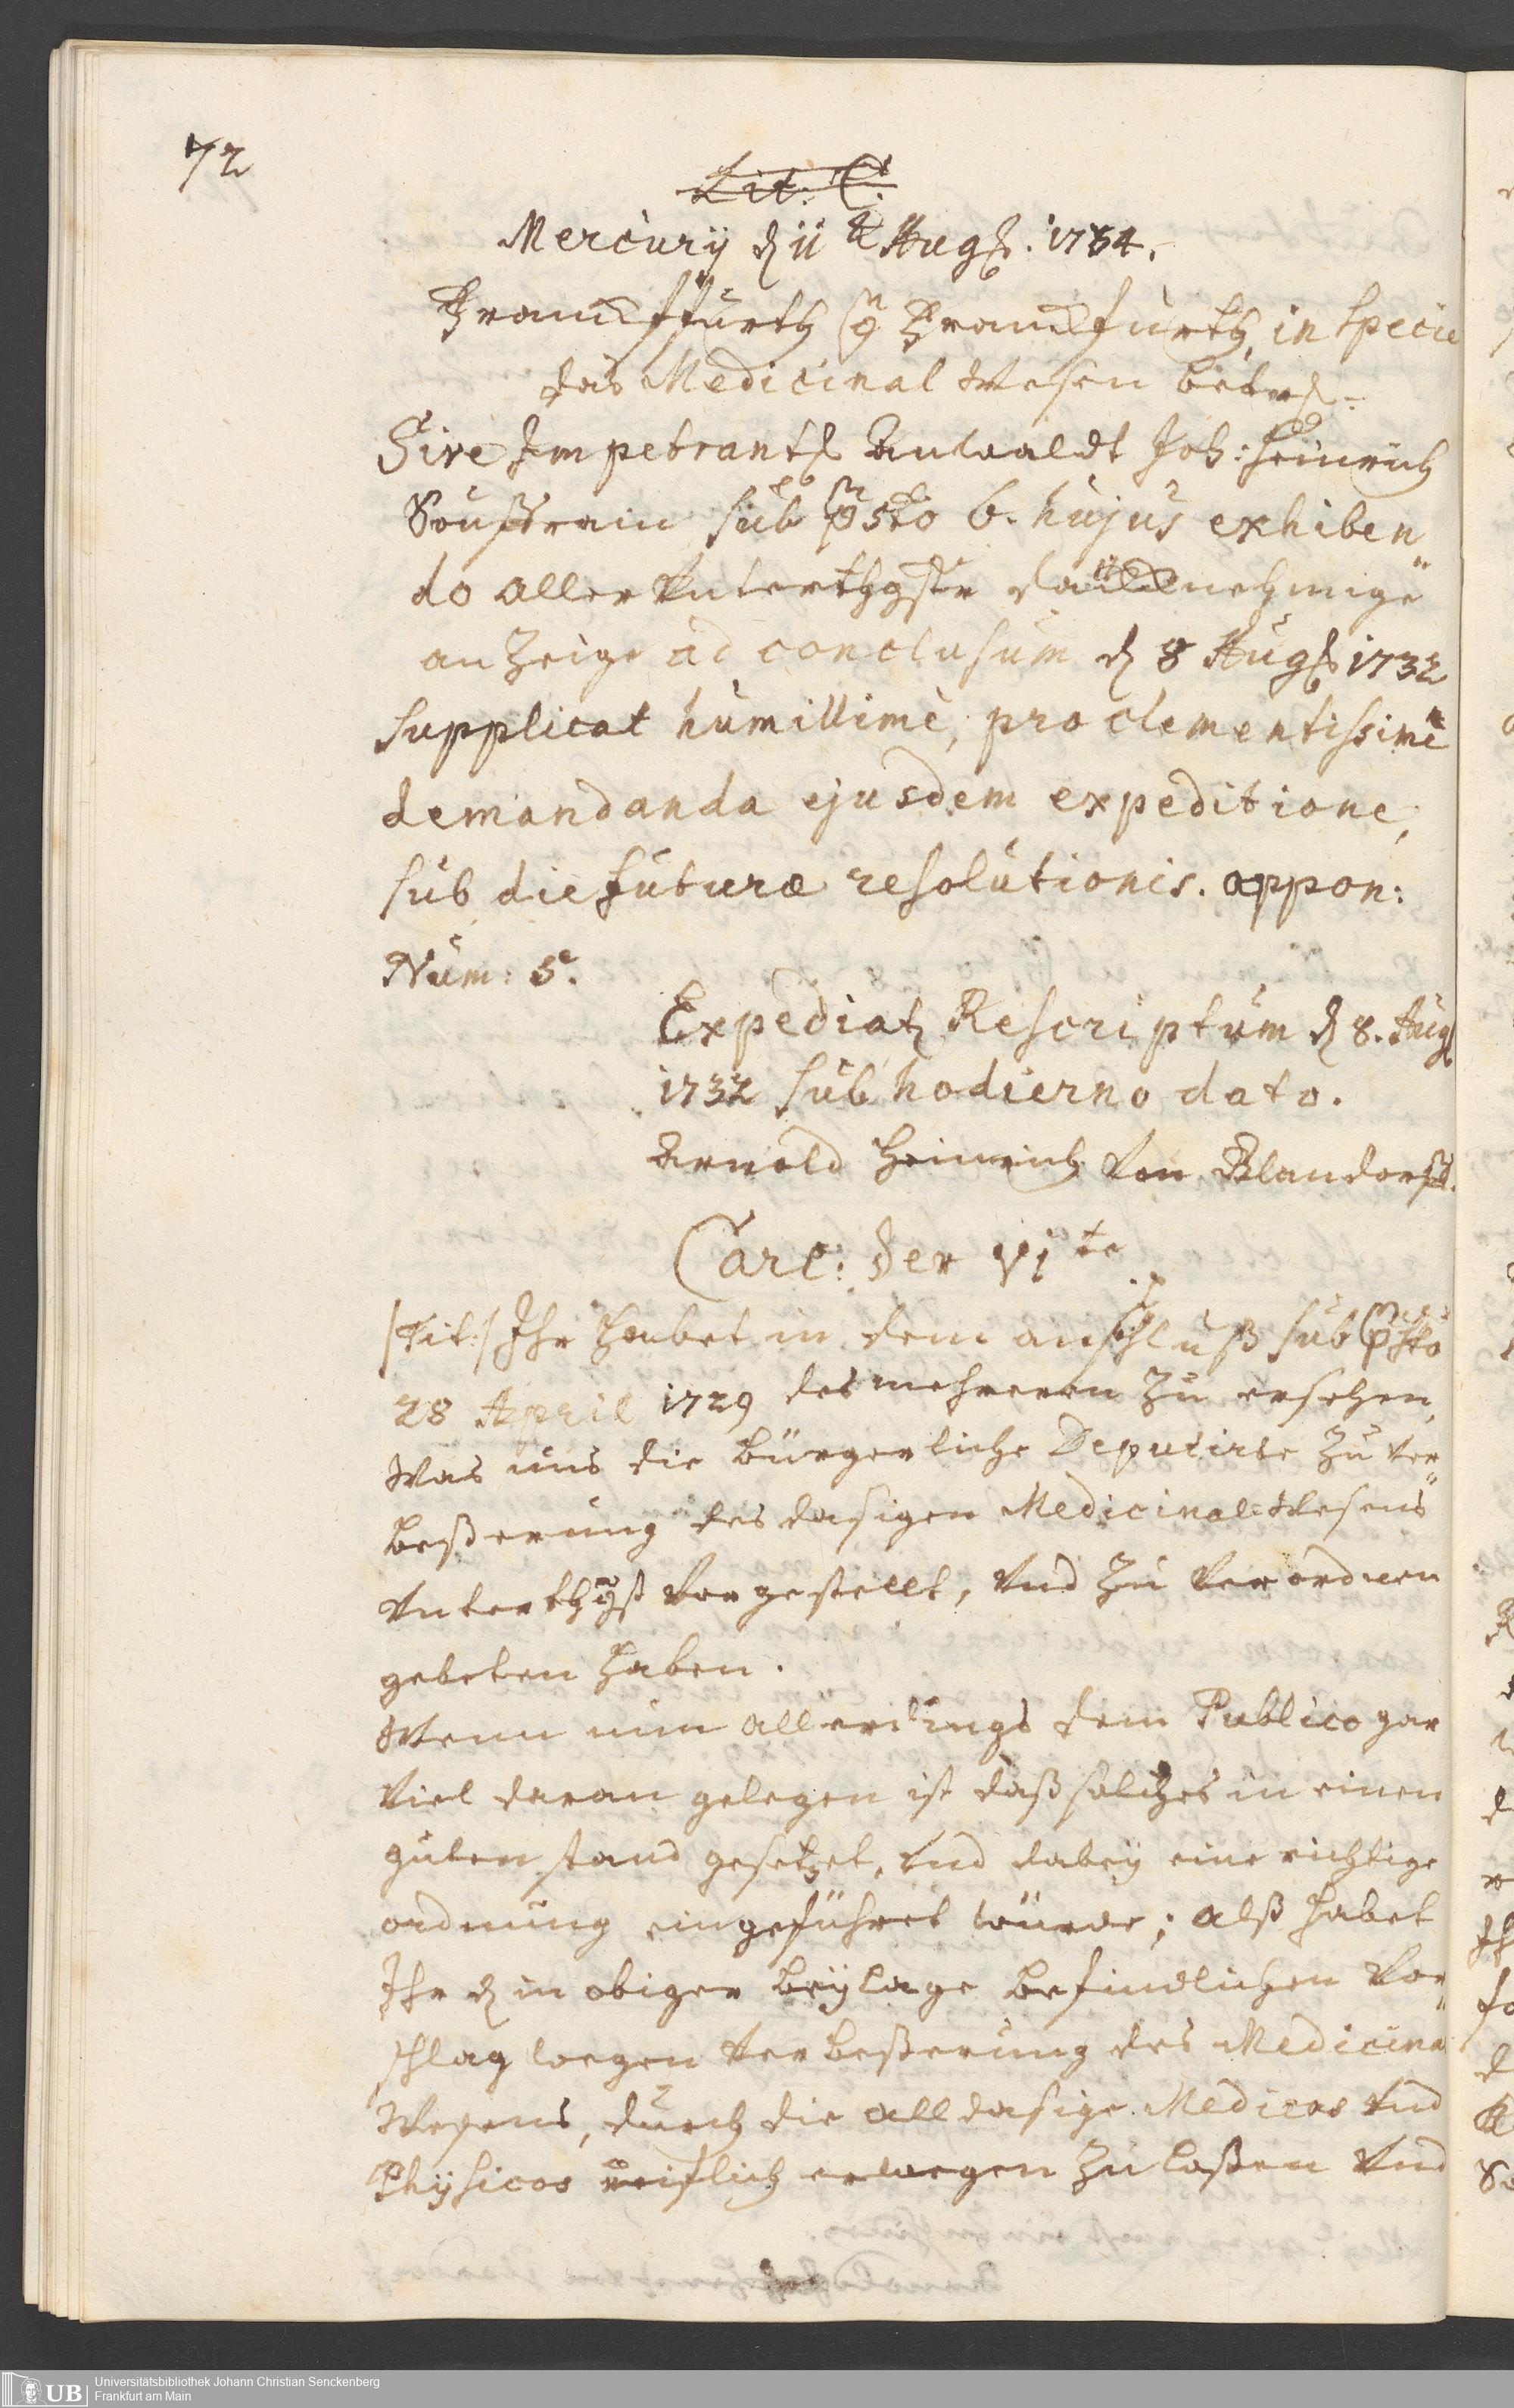 72
Lit. C.
Mercurÿ d 11 t Augs. 1734.
Franckffurth ca Franckfurth, in specie
das Medicinal Wesen betrf.
Sive Impetrants Anwaldt Joh: Heinrich
Souffrain sub psto 6. hujus exhiben"
do allerunterthgste nehmige
anzeige ad conclusum d 8 Augs 1732
supplicat humillime, pro clementissime
demandanda ejusdem expeditione,
sub die futuræ resolutionis. appon:
Num: 5.
Expediatr Rescriptum d 8. Aug
1732 sub hodierno dato.
Arnold Heinrich von Blandorff.
Carl: der VIte
/:tit:/ Ihr habet in dem anschluß sub psto
28 April 1729 des mehreren zu ersehen,
Was uns die bürgerliche Deputirte zu ver"
beßerung des dasigen Medicinal-Wesens
unterthgst vorgestellt, und zu verordnen
gebeten haben.
Wenn nun allerdings dem Publico gar
viel daran gelegen ist daß solches in einen
guten stand gesetzet, und dabeÿ eine richtige
ordnung eingeführet würde; alß habet
Ihr d in obiger beÿlage befindlichen Vor"
schlag wegen verbeßerung des Medicinal
Wesens, durch die alldasige Medicos und
Phÿsicos reiflich erwegen zu laßen und
UB
Universitätsbibliothek Johann Christian Senckenberg
Frankfurt am Main